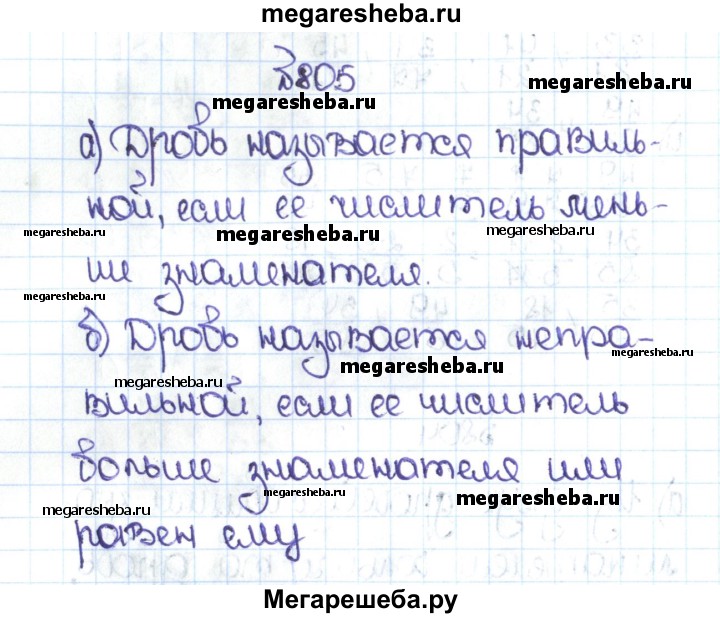 megaresheba.ru
№805
megaresheba.ru
megaresheba.ru
а) Дробь называется правиль-
ной, если ее числитель мень-
megaresheba.ru
megaresheba.ru
megaresheba.ru
ше знаменателя.
megaresheba.ru
б) Дробь называется непра-
megaresheba.ru
megaresheba.ru
megaresheba.ru
вильной, если ее числитель
больше знаменателя или
megaresheba.ru
megaresheba.ru
megaresheba.ru
равен ему
Мегарешеба.ру